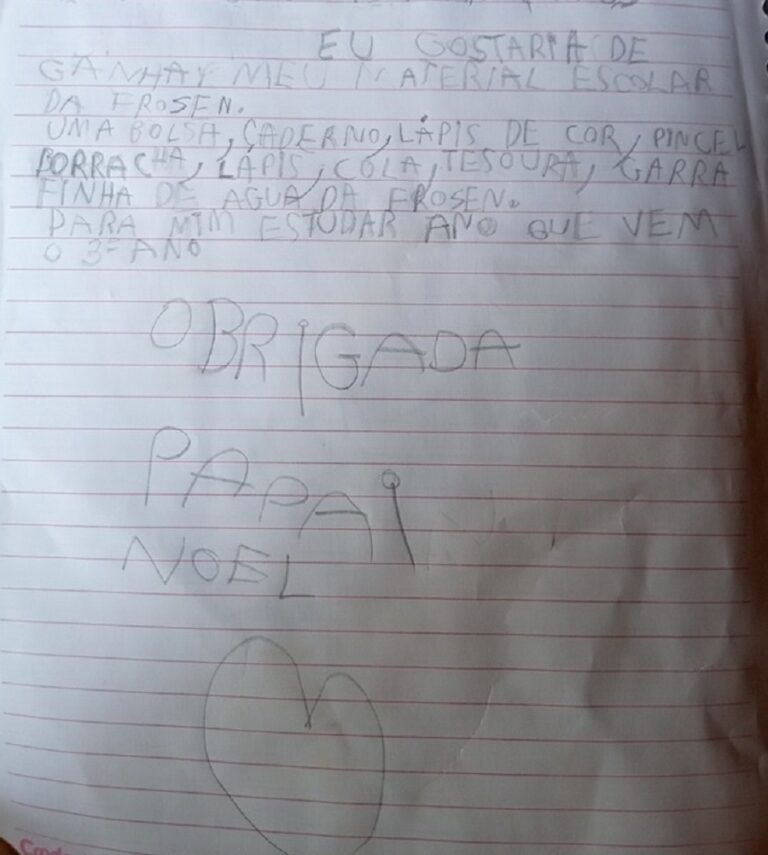 EU GOSTARIA DE
GANHAR MEU MATERIAL ESCOLAR
DA FROSEN.
UMA BOLSA, CADERNO, LÁPIS DE COR, PINCEL
BORRACHA, LÁPIS, COLA, TESOURA, GARRA
FINHA DE AGUA DA FROSEN.
PARA MIM ESTUDAR ANO QUE VEM
O 3º ANO
OBRIGADA
PAPAI
NOEL